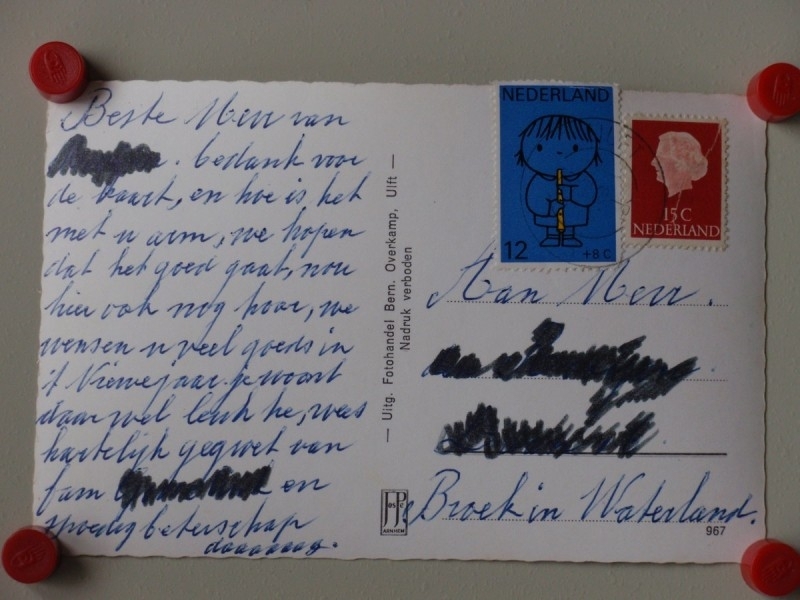 Beste Mevr van
. bedankt voor
de kaart, en hoe is het
met u arm, we hopen
dat het goed gaat, nou
hier ook nog hoor, we
wensen u veel goeds in
't Nieuwejaar. je woont
daar wel leuk he, wees
hartelijk gegroet van
fam en
spoedig beterschap
daaaaaag.
— Uitg. Fotohandel Bern. Overkamp, Ulft —
Nadruk verboden
NEDERLAND
12 +8C
15C
NEDERLAND
Aan Mevr.
Broek in Waterland.
ARNHEM
967